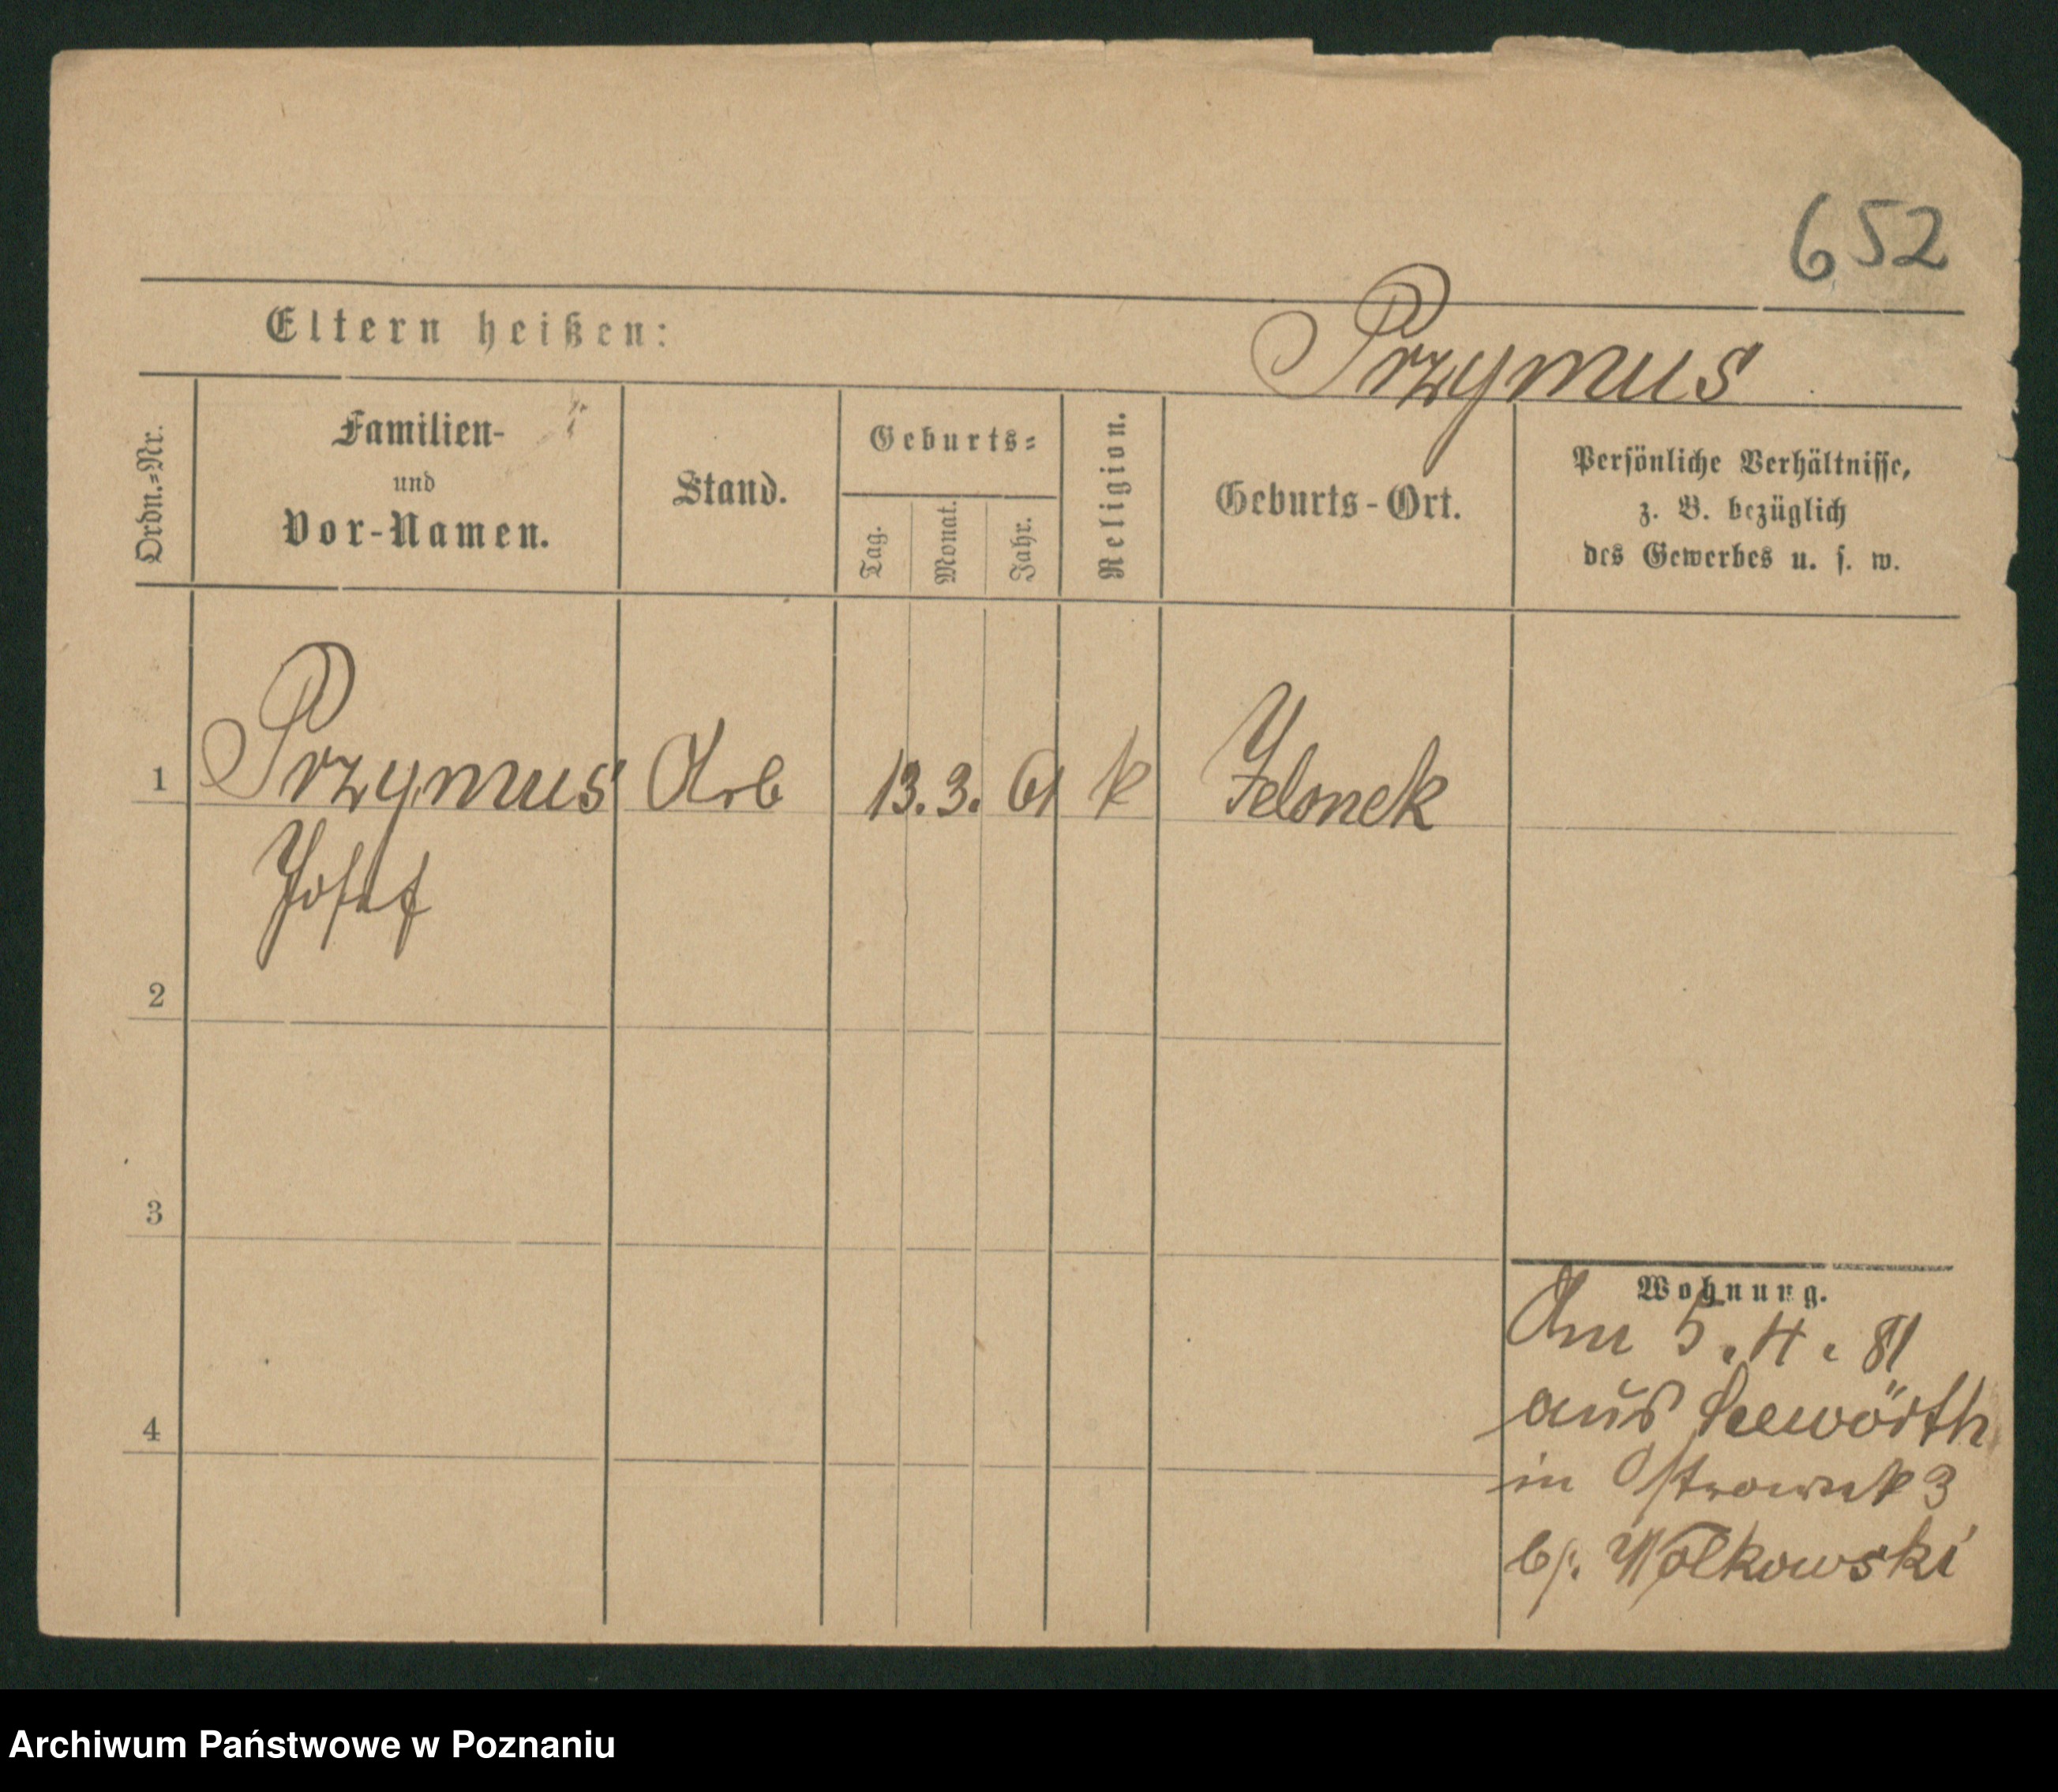 652
Eltern heißen: Przymus
Ordn.-Nr.
Familien-
und
Vor-Namen.
Stand.
Geburts-
Tag.
Monat.
Jahr.
Religion.
Geburts-Ort.
Persönliche Verhältnisse,
z. B. bezüglich
des Gewerbes u. s. w.
1 Przymus Arb 13. 3. 61 k Jelonek
Josef
2
3
4
Wohnung.
Am 5. 4. 81
aus Seewörth
in Ostrowek 3
b/. Wolkowski
Archiwum Państwowe w Poznaniu